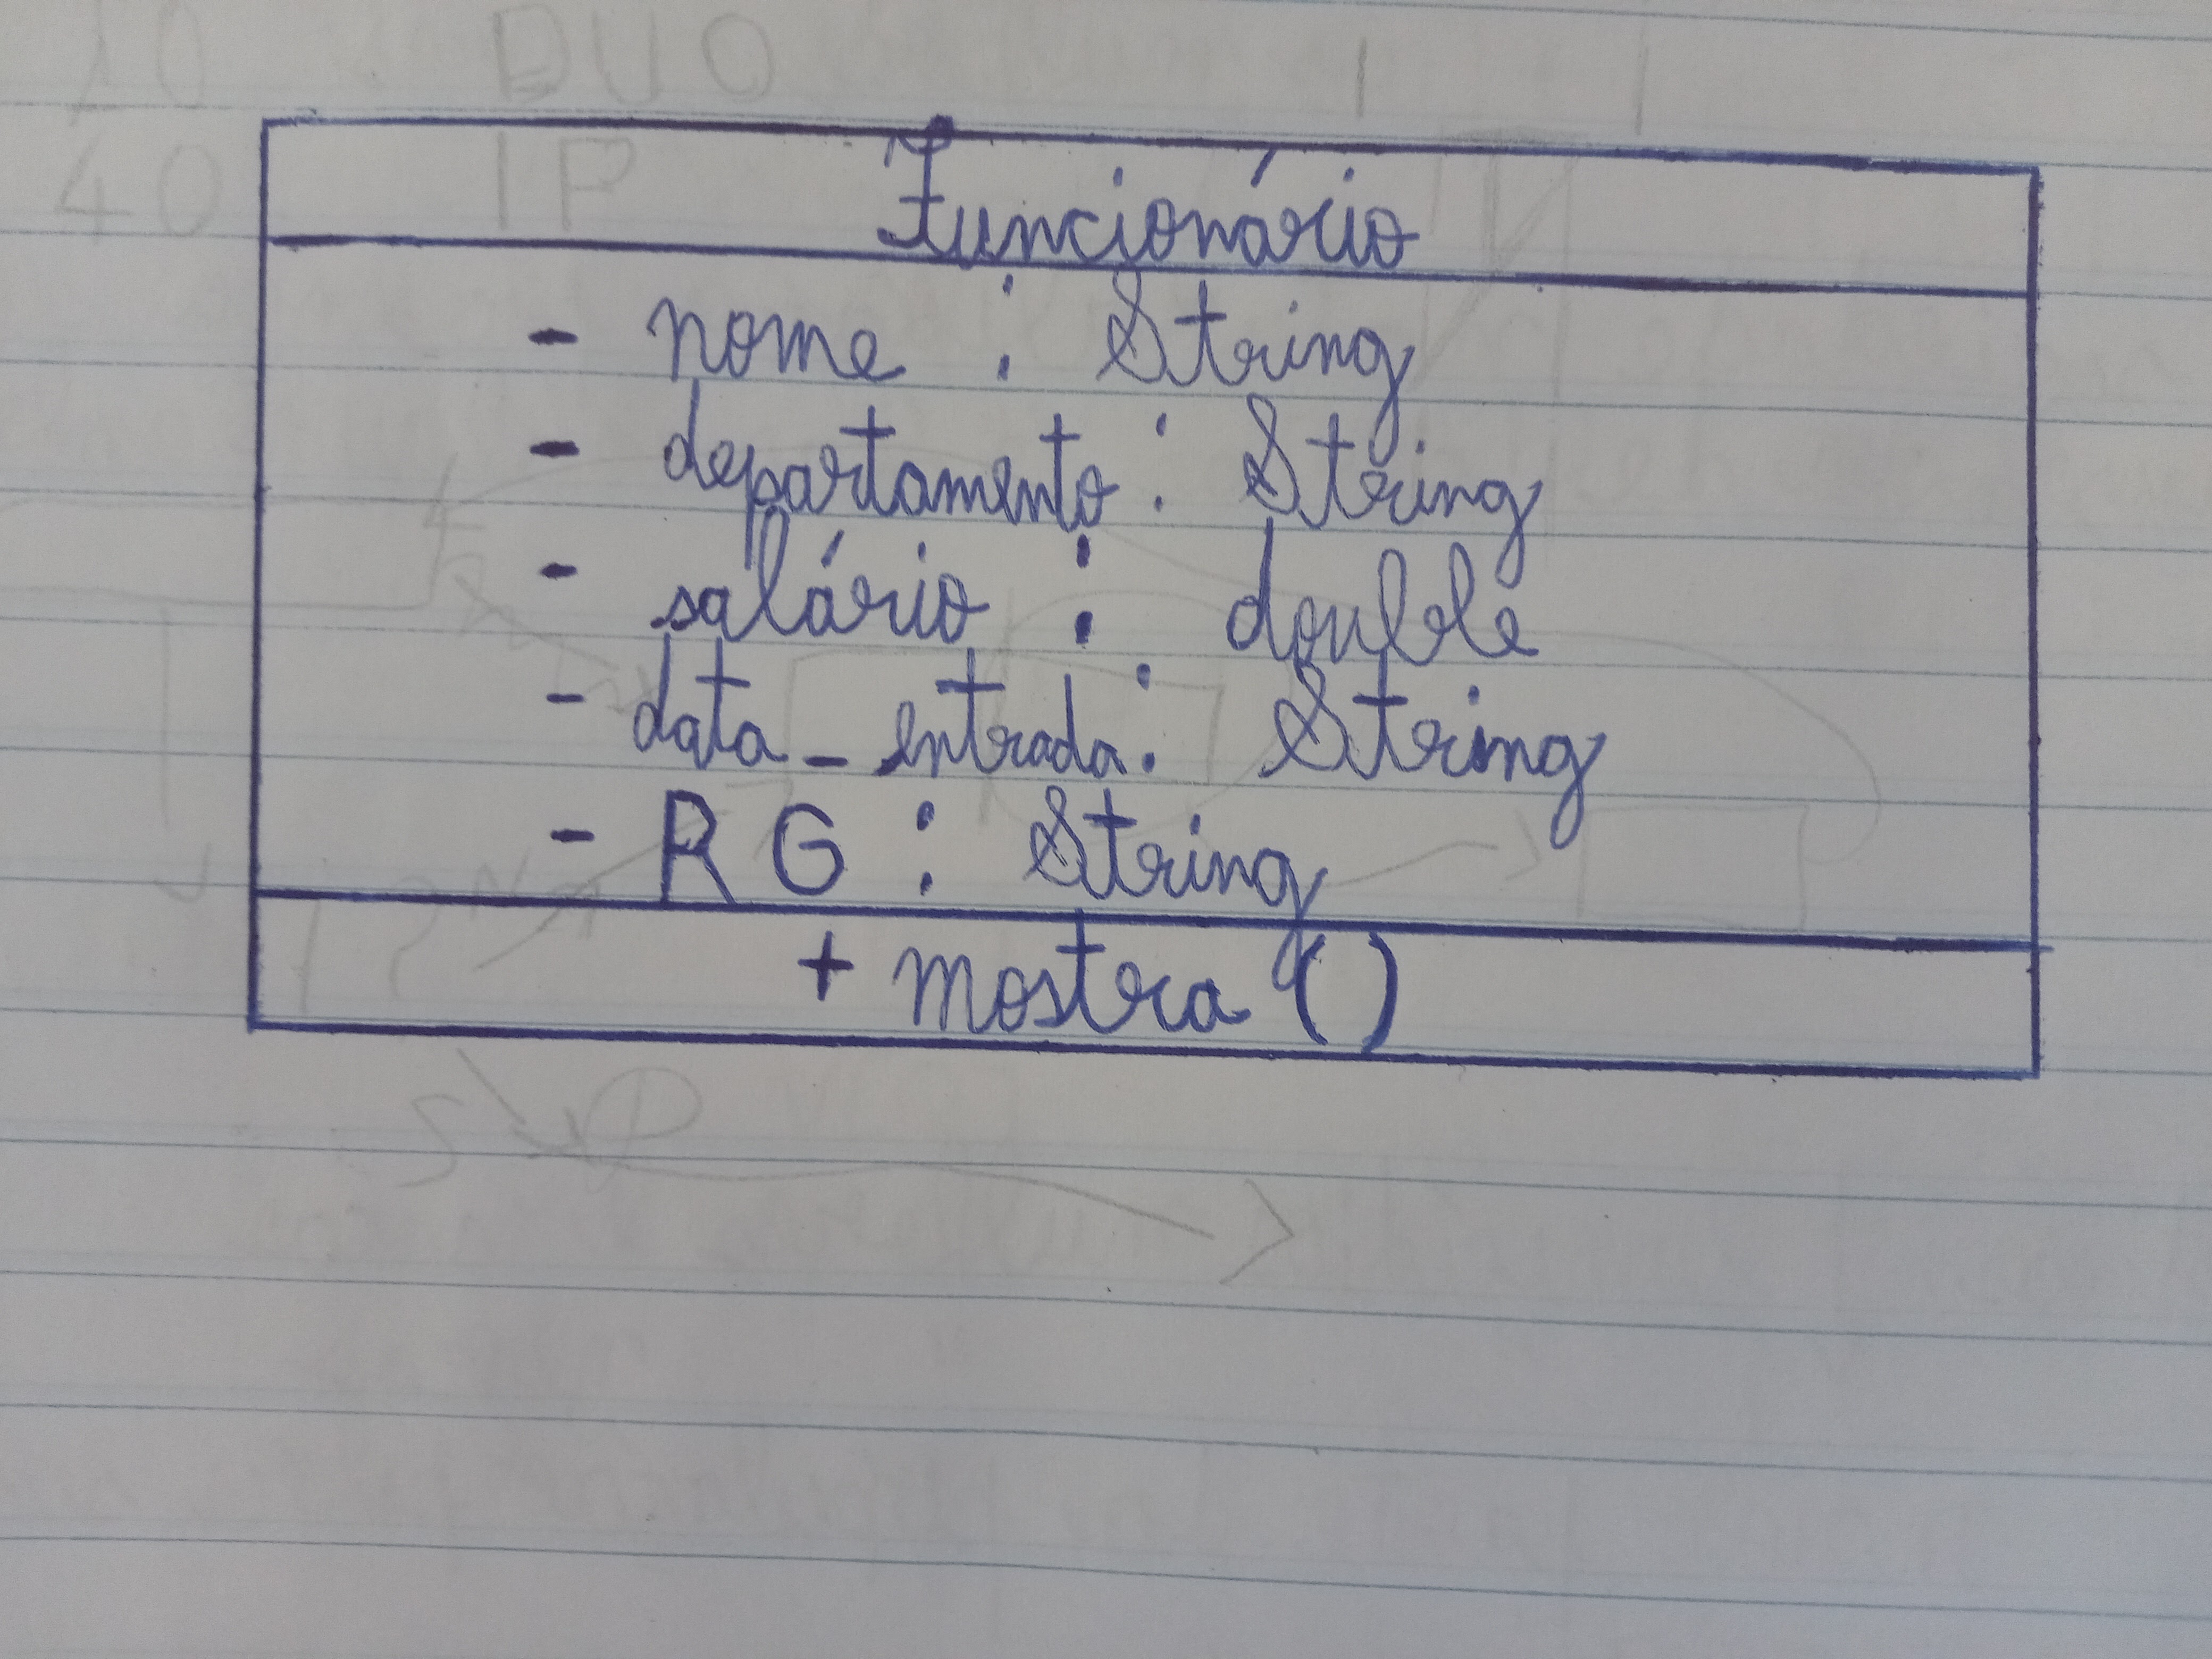 Funcionário
- nome : String
- departamento : String
- salário : double
- data_entrada : String
- RG : String
+ mostra ()